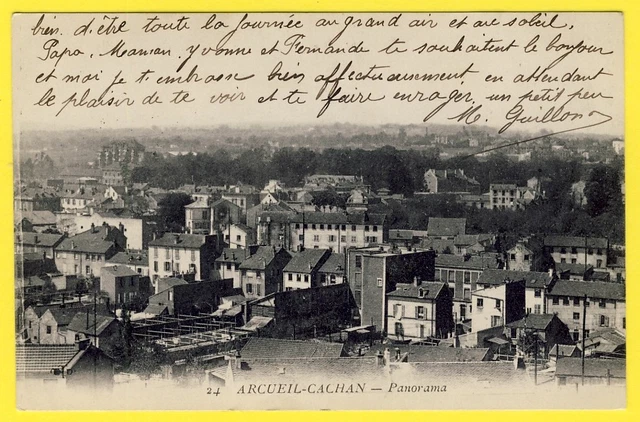 bien. d'être toute la journée au grand air et au soleil.
Papa, Maman, Yvonne et Fernande te souhaitent le bonjour
et moi je t'embrasse bien affectueusement, en attendant
le plaisir de te voir et te faire enrager, un petit peu
M. Guillon
24 ARCUEIL-CACHAN — Panorama